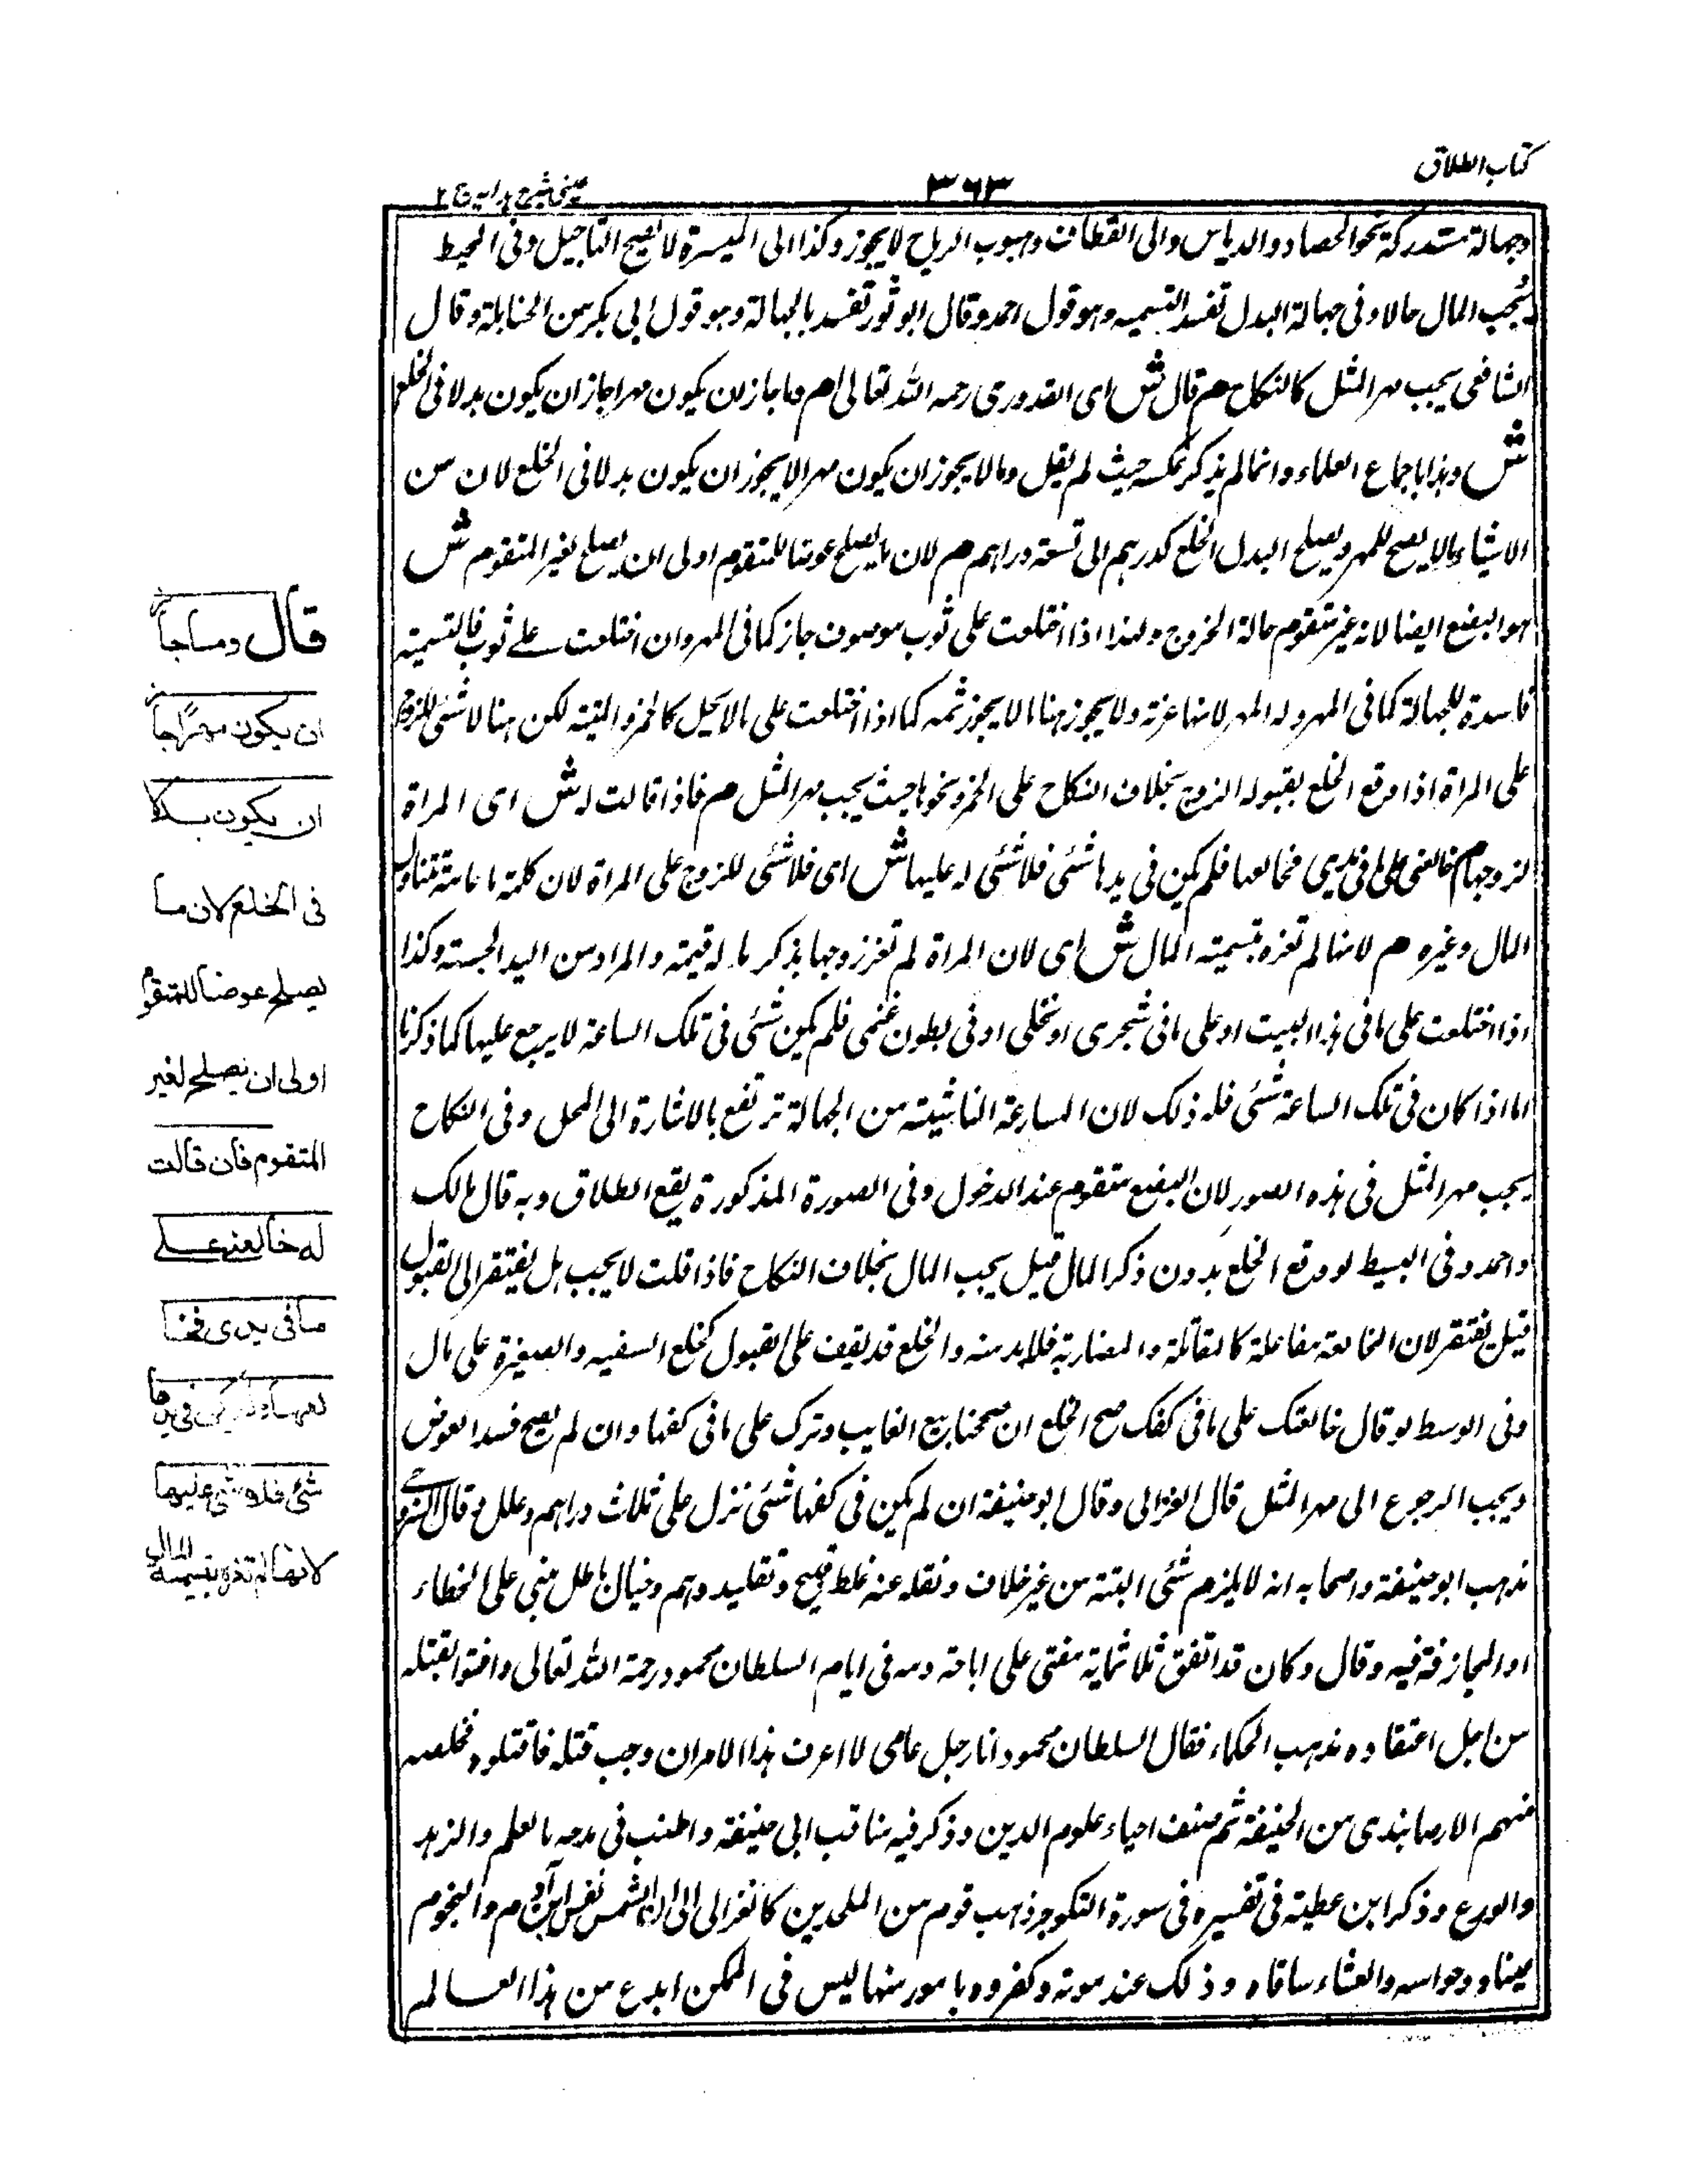 كتاب الطلاق
٣٦٣
عينى شرح هدايه ج ٢
وجهالة مستدركة نحو الحصاد والدياس والى القطاف وهبوب الرياح لا يجوز وكذا الى الميسرة لا يصح التاجيل وفى المحيط
يجب المال حالا وفى جهالة البدل تفسد التسميه وهو قول احمد وقال ابو ثور تفسد بالجهالة وهو قول ابى بكر من الحنابلة وقال
الشافعى يجب مهر المثل كالنكاح م قال ش اى القدورى رحمه الله تعالى م وما جاز ان يكون مهرا جاز ان يكون بدلا فى الخلع
ش وهذا باجماع العلماء وانما لم يذكر عكسه حيث لم يقل وما لا يجوز ان يكون مهرا لا يجوز ان يكون بدلا فى الخلع لان من
الاشياء ما لا يصح للمهر ويصلح البدل الخلع كدرهم الى تسعة دراهم م لان ما يصلح عوضا للمتقوم اولى ان يصلح لغير المتقوم ش
هو البضع ايضا لانه غير متقوم حالة الخروج ولهذا اذا اختلعت على ثوب موصوف جاز كما فى المهر وان اختلعت على ثوب فالتسمية
فاسدة للجهالة كما فى المهر وله المهر لانها غرته ولا يجوز هنا ما لا يجوز ثمه كما اذا اختلعت على ما لا يحل كالخمر والميتة لكن هنا لا شئ للزوج
على المراة اذا وقع الخلع بقبوله الزوج بخلاف النكاح على الخمر ونحوها حيث يجب مهر المثل م فاذا قالت له ش اى المراة
لزوجها م خالعنى على ما فى يدى فخالعها فلم يكن فى يدها شئى فلا شئى له عليها ش اى فلا شئى للزوج على المراة لان كلمة ما عامة تتناول
المال وغيره م لانها لم تغره بتسمية المال ش اى لان المراة لم تغر زوجها بذكر ما له قيمته والمراد من اليد الحسته وكذا
اذا اختلعت على ما فى هذا البيت او على ما فى شجرى او نخلى او فى بطون غنمى فلم يكن شئى فى تلك الساعة لا يرجع عليها كما ذكرنا
اما اذا كان فى تلك الساعة شئى فله ذلك لان المسارعة الناشيته من الجهالة ترتفع بالاشارة الى المحل وفى النكاح
يجب مهر المثل فى هذه الصور لان البضع متقوم عند الدخول وفى الصورة المذكورة يقع الطلاق وبه قال مالك
واحمد وفى البسيط لو وقع الخلع بدون ذكر المال قيل يجب المال بخلاف النكاح فاذا قلت لا يجب هل يفتقر الى القبول
قيل يفتقر لان المخالعة مفاعلة كالمقاتلة والمضاربة فلابد منه والخلع قد يقف على القبول كخلع السفيه والصغيرة على مال
وفى الوسط لو قال خالعتك على ما فى كفك صح الخلع ان صححنا بيع الغايب وترك على ما فى كفها وان لم يصح فسد العوض
ويجب الرجوع الى مهر المثل قال الغزالى وقال ابو حنيفة ان لم يكن فى كفها شئى نزل على ثلاث دراهم وعلل وقال السروجى
مذهب ابو حنيفة واصحابه انه لا يلزم شئى البتة من غير خلاف ونقله عنه غلط قبيح وتقليد وهم وخيال باطل مبنى على الخطاء
او المجازفة فيه وقال وكان قد اتفق ثلاثماية مفتى على اباحة دمه فى ايام السلطان محمود رحمة الله تعالى وافتوا بقتله
من اجل اعتقاده مذهب الحكماء فقال السلطان محمود انا رجل عامى لا اعرف هذا الامر ان وجب قتله فاقتلوه فخلصه
منهم الارصابندى من الحنيفة ثم صنف احياء علوم الدين وذكر فيه مناقب ابى حنيفة واطنب فى مدحه بالعلم والزهد
والورع وذكر ابن عطية فى تفسيره فى سورة التكوير ذهب قوم من الملحدين كالغزالى الى ان الشمس نفس ابن آدم والنجوم
عيناه وحواسه والعشاء ساقاه وذلك عند موته وكفروه بامور منها ليس فى الممكن ابدع من هذا العالم
قال وما جاز
ان يكون مهرًا جاز
ان يكون بدلا
فى الخلع لان ما
يصلح عوضا للمتقوم
اولى ان يصلح لغير
المتقوم فان قالت
له خالعنى على
ما فى يدى فخا
لعها ولم يكن فى يدها
شئ فلا شئ عليها
لانها لم تغره بتسمية المال